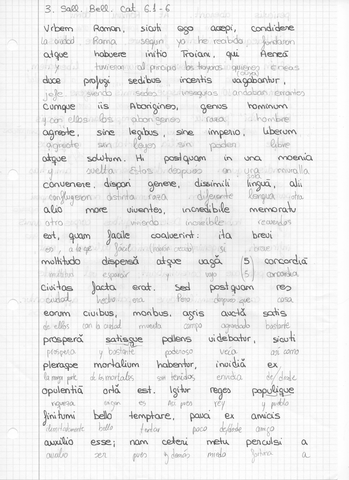 3. Sall. Bell. Cat 6.1-6
Urbem Roman, sicuti ego acepi, condidere
la ciudad Roma según yo he recibido fundaron
atque habuere initio Troiani, qui Aenea
y tuvieron al principio los troyanos quienes eneas
duce profugi sedibus incertis vagabantur,
jefe siendo sedes inseguras andaban errantes
Cumque iis Aborigines, genus hominum
y con ellos los aborígenes raza hombre
agreste, sine legibus, sine imperio, liberum
agreste sin leyes sin poder libre
atque solutum. Hi postquam in una moenia
y suelta Estos después en una muralla
convenere, dispari genere, dissimili lingua, alii
distinta raza diferente lengua otro
alio more viventes, incredibile memoratu
otro viviendo increíble
est, quam facile coaluerint: ita brevi
es facil breve
multitudo dispersa atque vaga (5) concordia
multitud y vago (5) concordia
civitas facta erat. Sed postquam res
ciudad hecho era Pero después que cosa
eorum civibus, moribus, agris aucta satis
de ellos con la ciudad campo bastante
prospera satisque pollens videbatur, sicuti
prospera y bastante poderoso veía así como
pleraque mortalium habentur, invidia ex
la mayor parte de los mortales son tenidos envidia de/desde
opulentia orta est. Igitur reges populique
riqueza es reyes y pueblo
finitumi bello temptare, pauci ex amicis
bello tentar poco de/desde amigo
auxilio esse; nam ceteri metu perculsi a
auxilio ser pues y demás miedo a